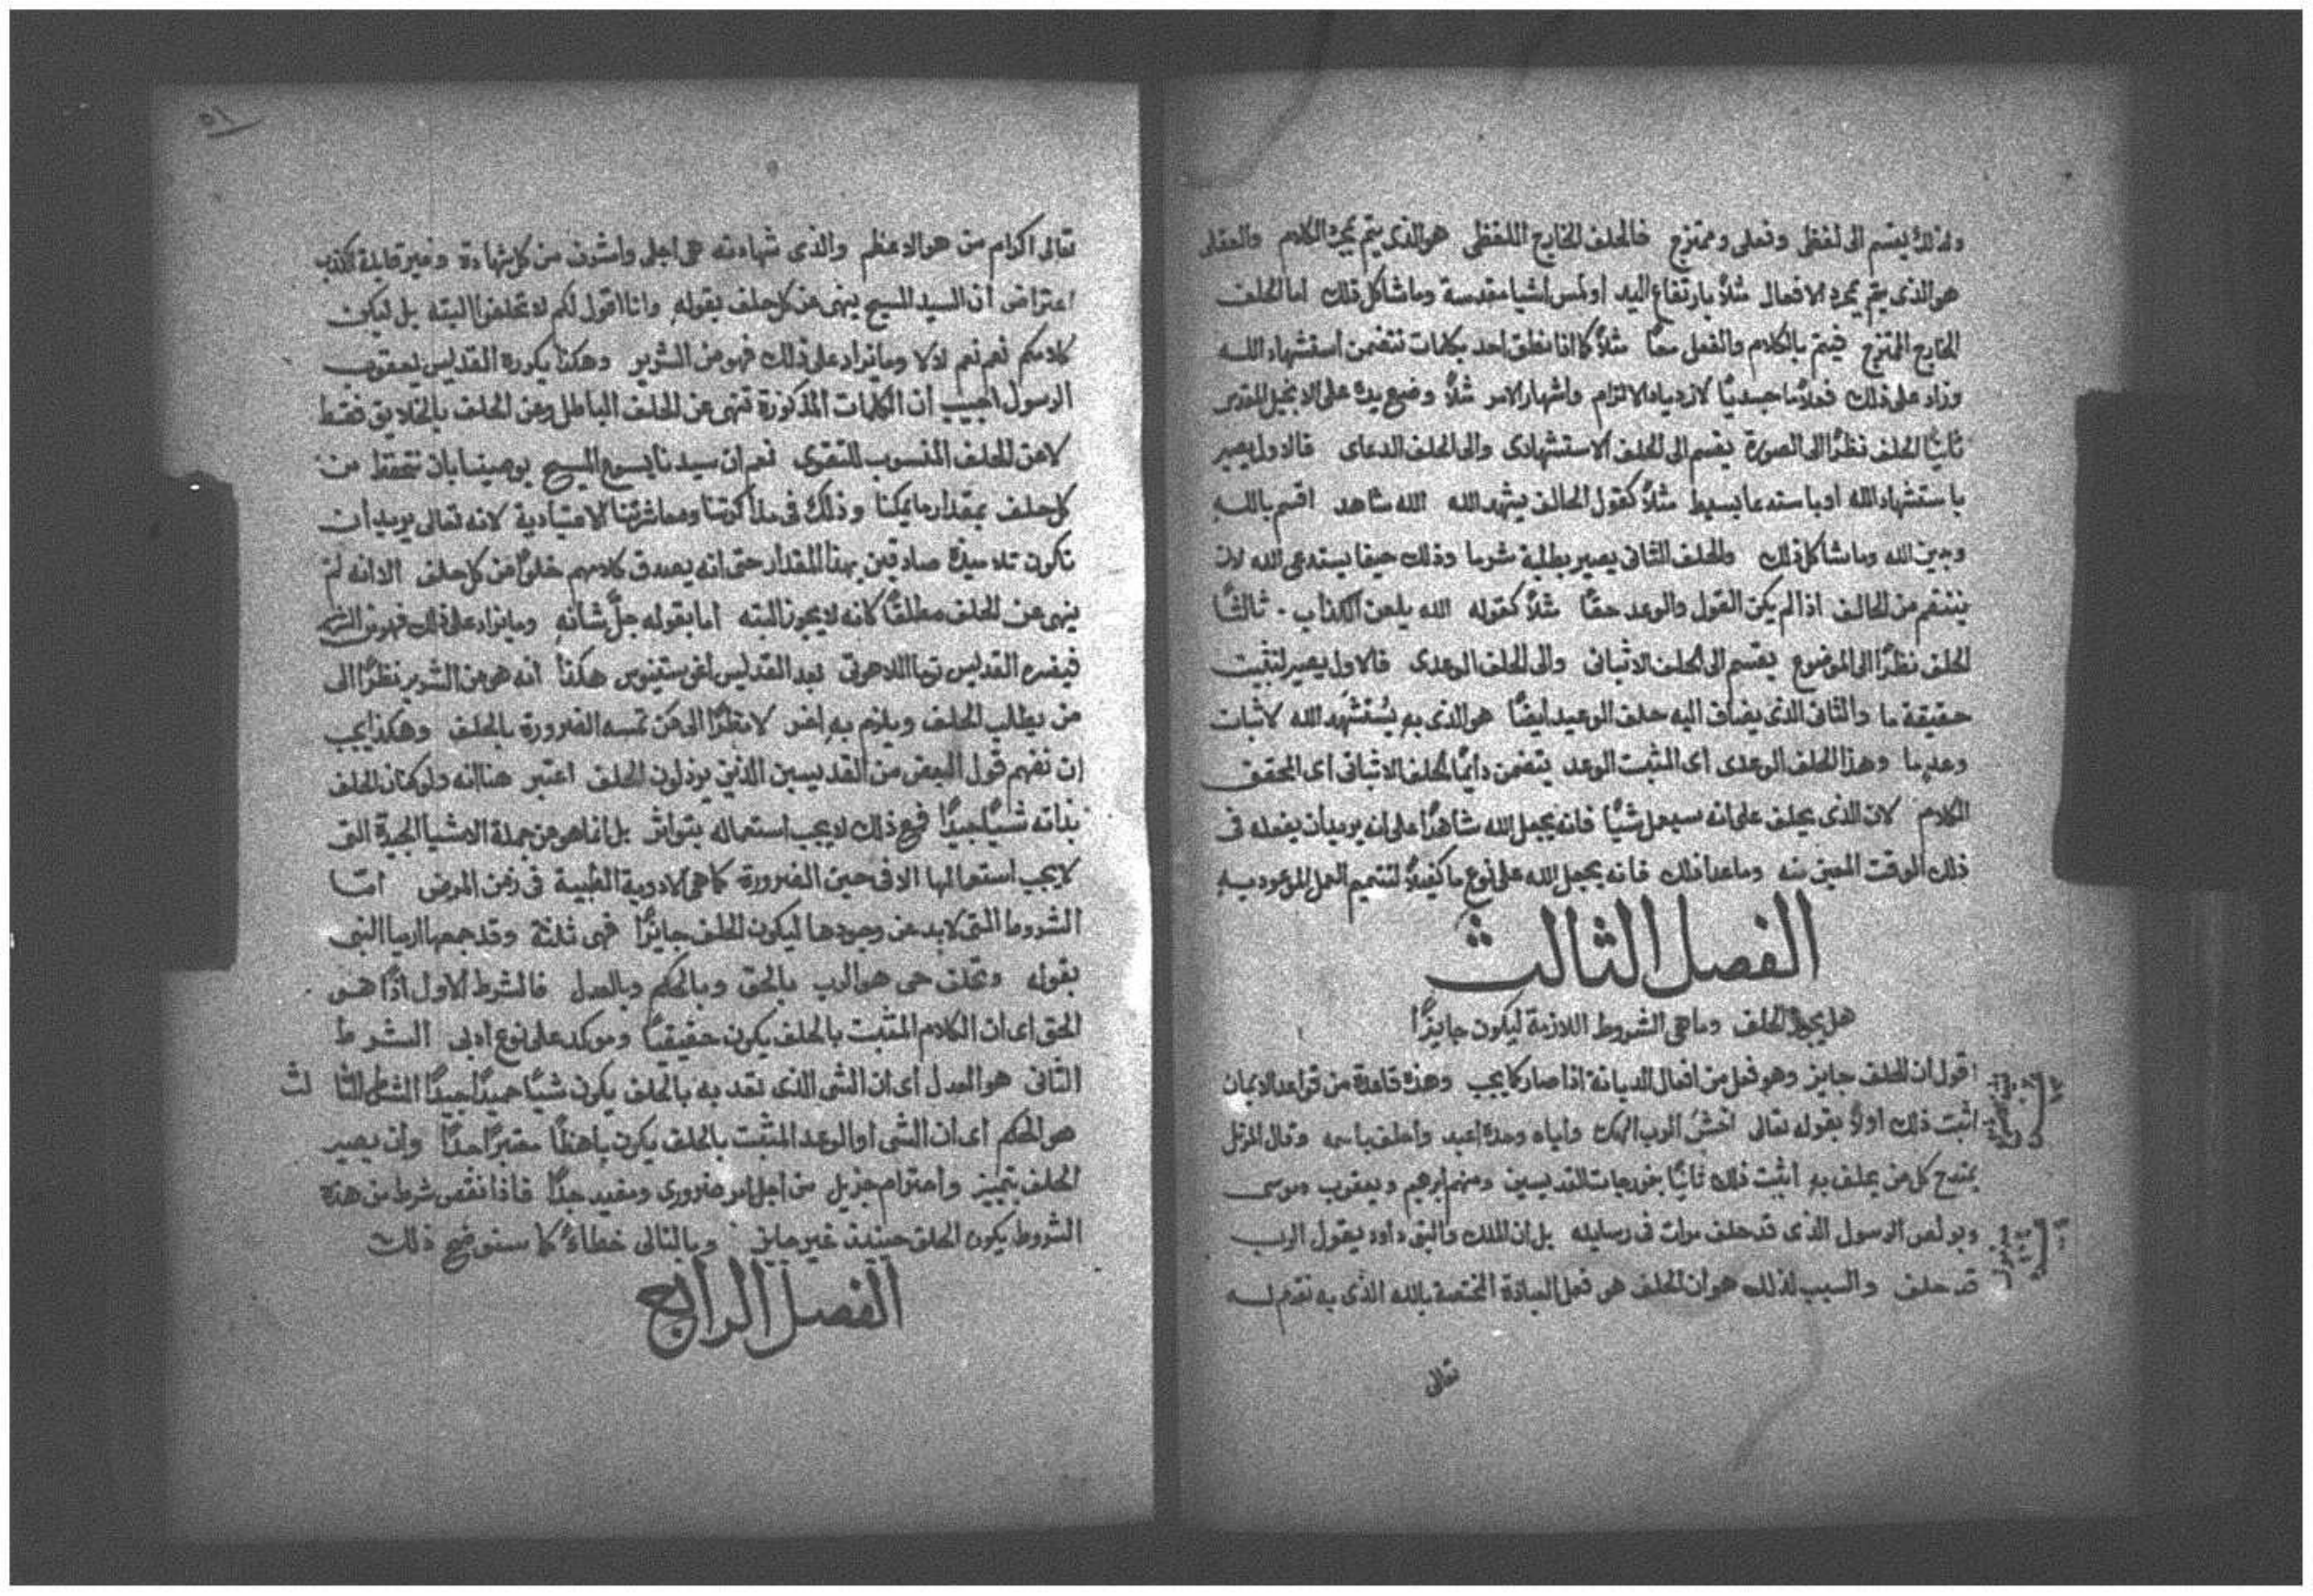 ولذلك يقسم الى لفظى وفعلى وممتزج فالحلف الخارج اللفظى هو الذى يتم بمجرد الكلام والفعلى
هو الذى يتم بمجرد الافعال مثلاً بارتفاع اليد او لمس اشيا مقدسة وما شاكل ذلك اما الحلف
الخارج الممتزج فيتم بالكلام والفعل معاً مثلاً كما اذا نطق احد بكلمات تتضمن استشهاد الله
وزاد على ذلك فعلاً ما جسدياً لازدياد الالتزام واشهار الامر مثلاً وضع يده على الانجيل المقدس
ثانياً الحلف نظراً الى الصورة يقسم الى الحلف الاستشهادى والى الحلف الدعاى فالاول يصير
باستشهاد الله او باستدعا بسيط مثلاً كقول الحالف يشهد الله الله شاهد اقسم بالله
ويمين الله وما شاكل ذلك والحلف الثانى يصير بطلبة شر ما وذلك حينما يستدعى الله لان
ينتقم من الحالف اذا لم يكن القول والوعد حقاً مثلاً كقوله الله يلعن الكذاب . ثالثاً
الحلف نظراً الى الموضوع يقسم الى الحلف الاثباتى والى الحلف الوعدى فالاول يصير لتثبيت
حقيقة ما والثانى الذى يضاف اليه حلف الوعيد ايضاً هو الذى به يُستشهد الله لاثبات
وعد ما وهذا الحلف الوعدى اى المثبت الوعد يتضمن دايماً الحلف الاثباتى اى المحقق
الكلام لان الذى يحلف على انه سيعمل شياً فانه يجعل الله شاهداً على انه يريد ان يفعله فى
ذلك الوقت المعين منه وما عدا ذلك فانه يجعل الله على نوع ما كفيلاً لتتميم العمل الموعود به
الفصل الثالث
هل يجوز الحلف وما هى الشروط اللازمة ليكون جايزاً
اقول ان الحلف جايز وهو فعل من افعال الديانة اذا صار كما يجب وهذه قاعدة من قواعد الايمان
اثبت ذلك اولاً بقوله تعالى اخشَ الرب الهك واياه وحده اعبد واحلف باسمه وقال المرتل
يمتدح كل من يحلف به اثبت ذلك ثانياً بنموذجات القديسين ومنهم ابرهيم ويعقوب وموسى
وبولص الرسول الذى قد حلف مرات فى رسايله بل ان الملك والنبى داود يقول الرب
قد حلف والسبب لذلك هو ان الحلف هو فعل العبادة المختصة بالله الذى به نقدم له
تعالى
٥١
تعالى اكرام من هو الاعظم والذى شهادته هى اجلى واشرف من كل شهادة وغير قابلة الكذب
اعتراض ان السيد المسيح ينهى عن كل حلف بقوله وانا اقول لكم لا تحلفوا البتة بل ليكن
كلامكم نعم نعم لا لا وما يزاد على ذلك فهو من الشرير وهكذا يكرره القديس يعقوب
الرسول اجيب ان الكلمات المذكورة تنهى عن الحلف الباطل وعن الحلف بالخلايق فقط
لا عن الحلف المنسوب للتقوى نعم ان سيدنا يسوع المسيح يوصينا بان نتحفظ من
كل حلف بمقدار ما يمكنا وذلك فى مذاكرتنا ومعاشرتنا الاعتيادية لانه تعالى يريد ان
تكون تلاميذه صادقين بهذا المقدار حتى انه يصدق كلامهم خلواً من كل حلف الا انه لم
ينهى عن الحلف مطلقاً كانه لا يجوز البته اما بقوله جلّ شانه وما يزاد على ذلك فهو من الشرير
فيفسره القديس توما اللاهوتى بعد القديس اغوستينوس هكذا انه هو من الشرير نظراً الى
من يطلب الحلف ويلزم به اخر لا نظراً الى من تمسه الضرورة بالحلف وهكذا يجب
ان نفهم قول البعض من القديسين الذين يرذلون الحلف اعتبر هنا انه ولو كان الحلف
بذاته شياً جيداً فمع ذلك لا يجب استعماله بتواتر بل انما هو من جملة الاشيا الجيدة التى
لا يجب استعمالها الا فى حين الضرورة كما هى الادوية الطبية فى زمن المرض امّا
الشروط التى لا بد من وجودها ليكون الحلف جايزاً فهى ثلثة وقد جمعها ارميا النبى
بقوله وتحلف حى هو الرب بالحق وبالحكم وبالعدل فالشرط الاول اذاً هو
الحق اى ان الكلام المثبت بالحلف يكون حقيقياً وموكد على نوع ادبى الشرط
الثانى هو العدل اى ان الشى الذى نعد به بالحلف يكون شياً حميداً جيداً الشرط الثالث
هو الحكم اى ان الشى او الوعد المثبت بالحلف يكون باهظاً معتبراً جداً وان يصير
الحلف بتمييز واحترام جزيل من اجل امر ضرورى ومفيد جداً فاذا نقص شرط من هذه
الشروط يكون الحلف حينيذ غير جايز وبالتالى خطاءً كما سنوضح ذلك
الفصل الرابع